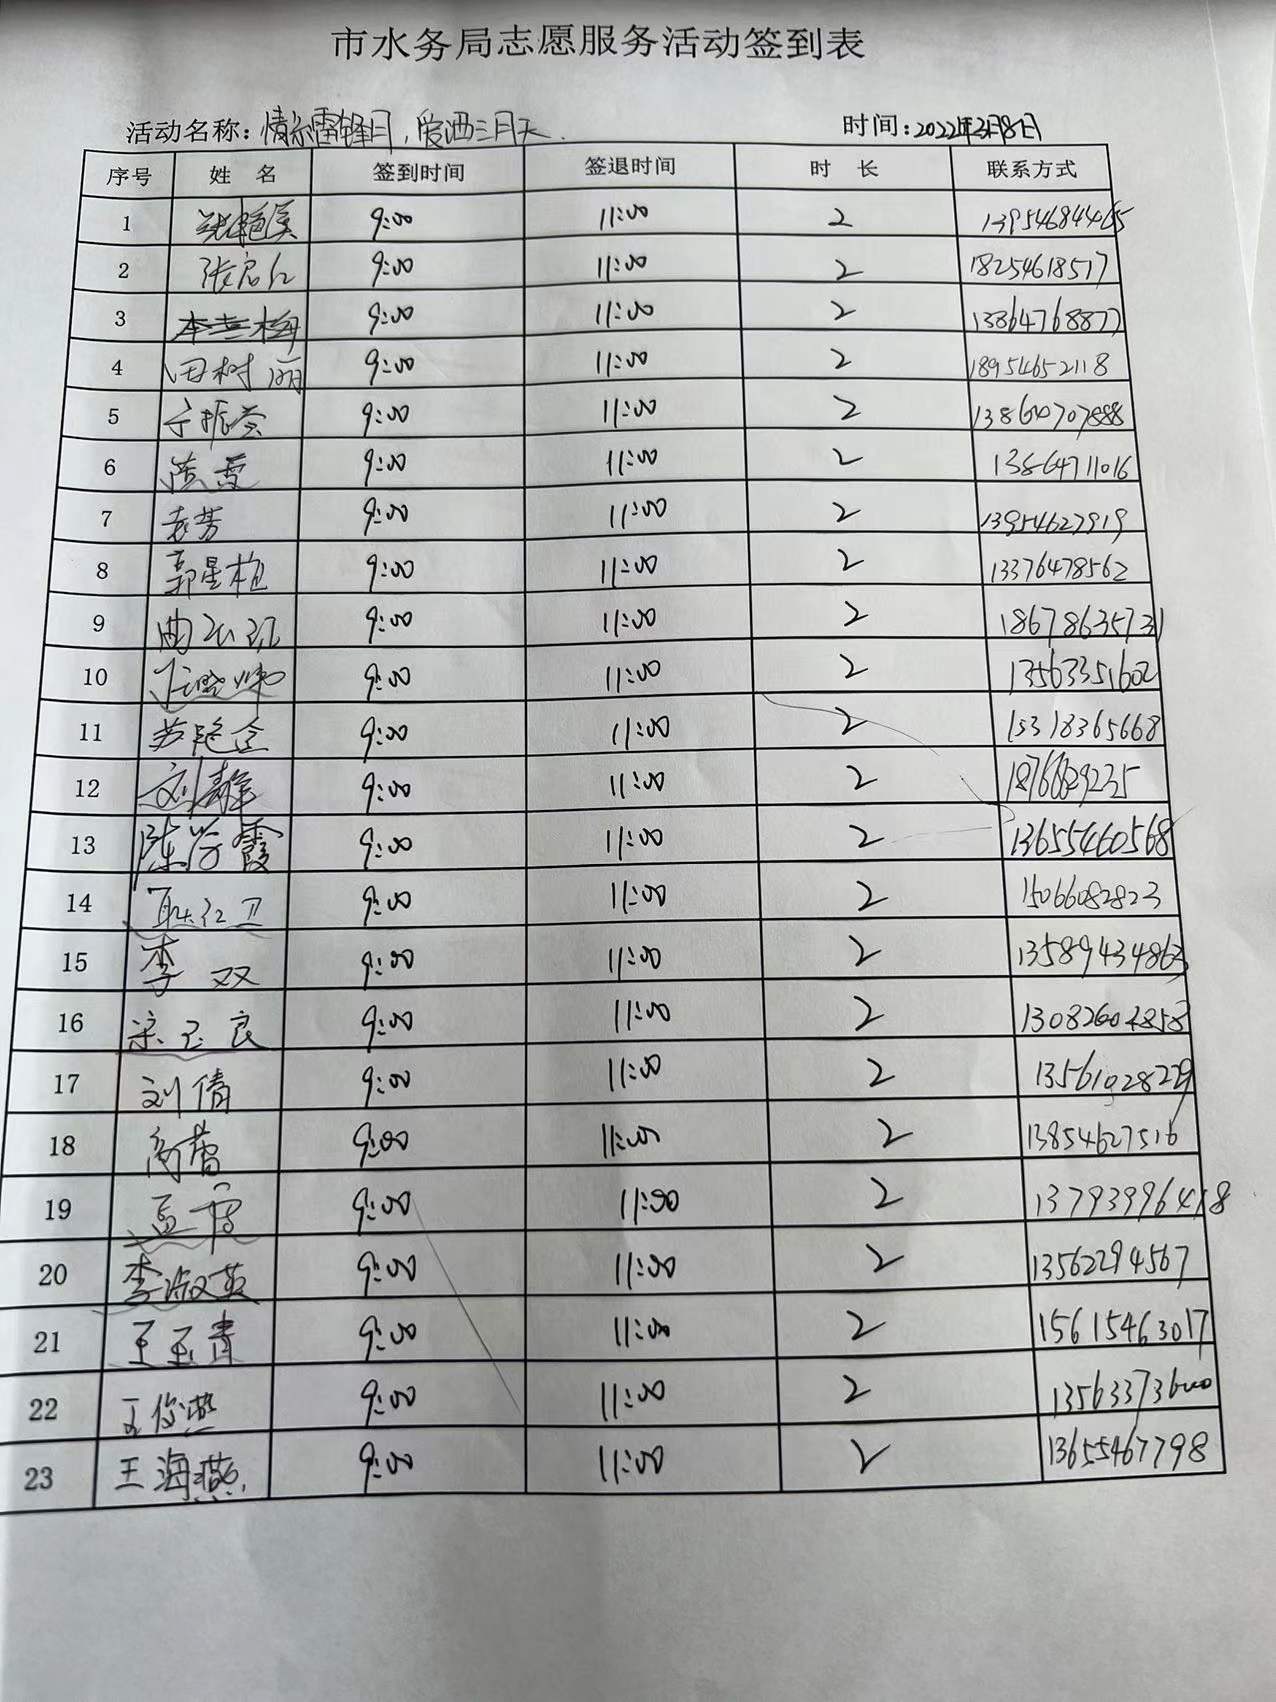 市水务局志愿服务活动签到表
活动名称：情系雷锋月，爱洒三月天． 时间：2022年3月8日
序号 姓 名 签到时间 签退时间 时 长 联系方式
1 9:00 11:00 2 13954684465
2 9:00 11:00 2 18254618517
3 李芸梅 9:00 11:00 2 13864768877
4 田树丽 9:00 11:00 2 18954652118
5 9:00 11:00 2
6 9:00 11:00 2 13864711016
7 袁芳 9:00 11:00 2 13954627919
8 郭星梅 9:00 11:00 2 13376478562
9 9:00 11:00 2 18678635731
10 9:00 11:00 2 13563351602
11 苏艳金 9:00 11:00 2 15318365668
12 刘静 9:00 11:00 2 18766829235
13 陈芳霞 9:00 11:00 2 13655460568
14 耿红卫 9:00 11:00 2 15066082823
15 李双 9:00 11:00 2 13589434863
16 宋玉良 9:00 11:00 2 13082604858
17 刘倩 9:00 11:00 2 13561028229
18 高蕾 9:00 11:00 2 13854627516
19 孟霞 9:00 11:00 2 13793996418
20 李淑英 9:00 11:00 2 13562294567
21 王玉青 9:00 11:00 2 15615463017
22 王俊燕 9:00 11:00 2 13563373600
23 王海燕 9:00 11:00 2 13655467798